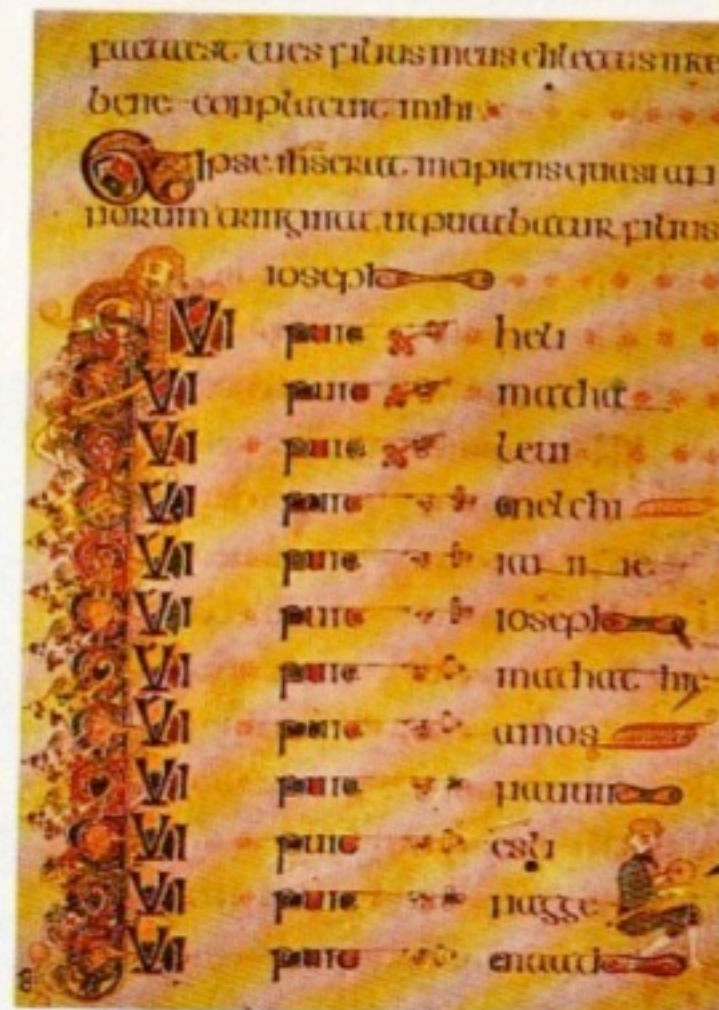 facta est tu es filius meus dilectus in te
bene conplacuit mihi
Et ipse ihs erat incipiens quasi an
norum triginta ut putabatur filius
ioseph
QVI fuit heli
QVI fuit mathat
QVI fuit leui
QVI fuit melchi
QVI fuit iannae
QVI fuit ioseph
QVI fuit mathathie
QVI fuit amos
QVI fuit nauum
QVI fuit esli
QVI fuit nagge
QVI fuit maath